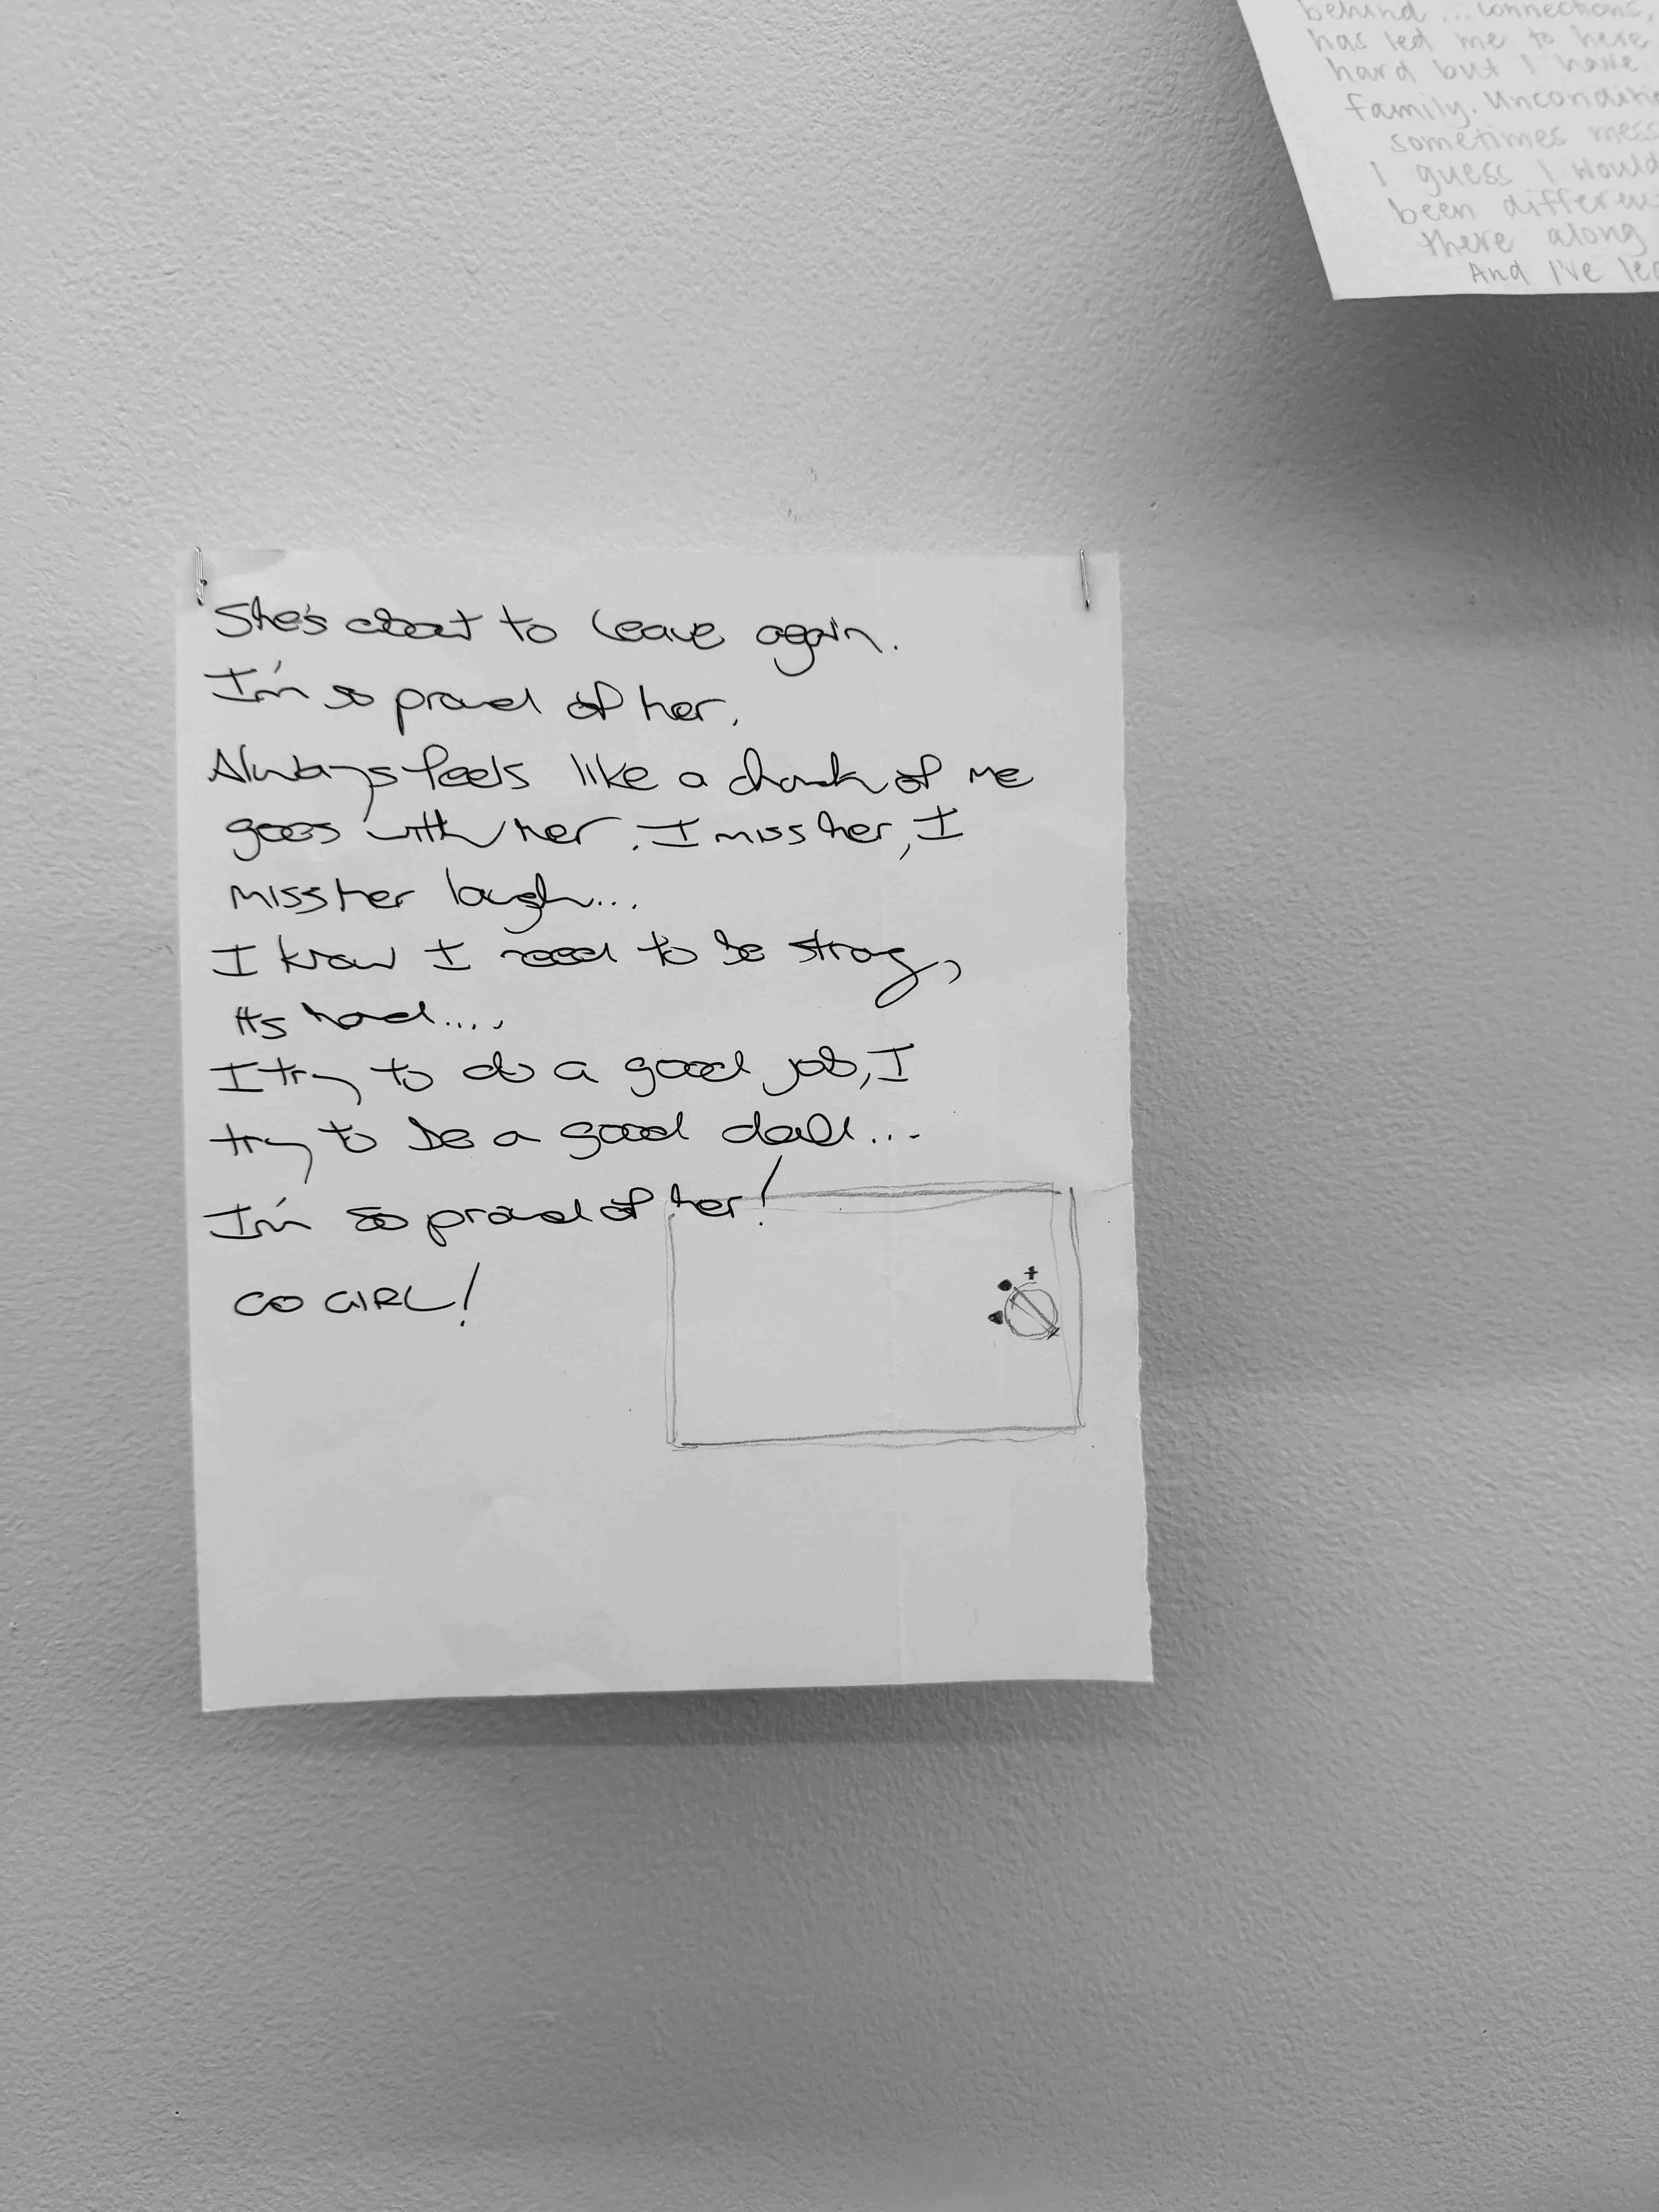 behind... connections,
has led me to here
hard but I have
family. Unconditio
sometimes mess
I guess I would
been differen
there along
And I've lea
She's about to leave again.
I'm so proud of her.
Always feels like a chunk of me
goes with her. I miss her, I
miss her laugh...
I know I need to be strong,
Its hard....
I try to do a good job, I
try to be a good dad...
I'm so proud of her!
GO GIRL!
+